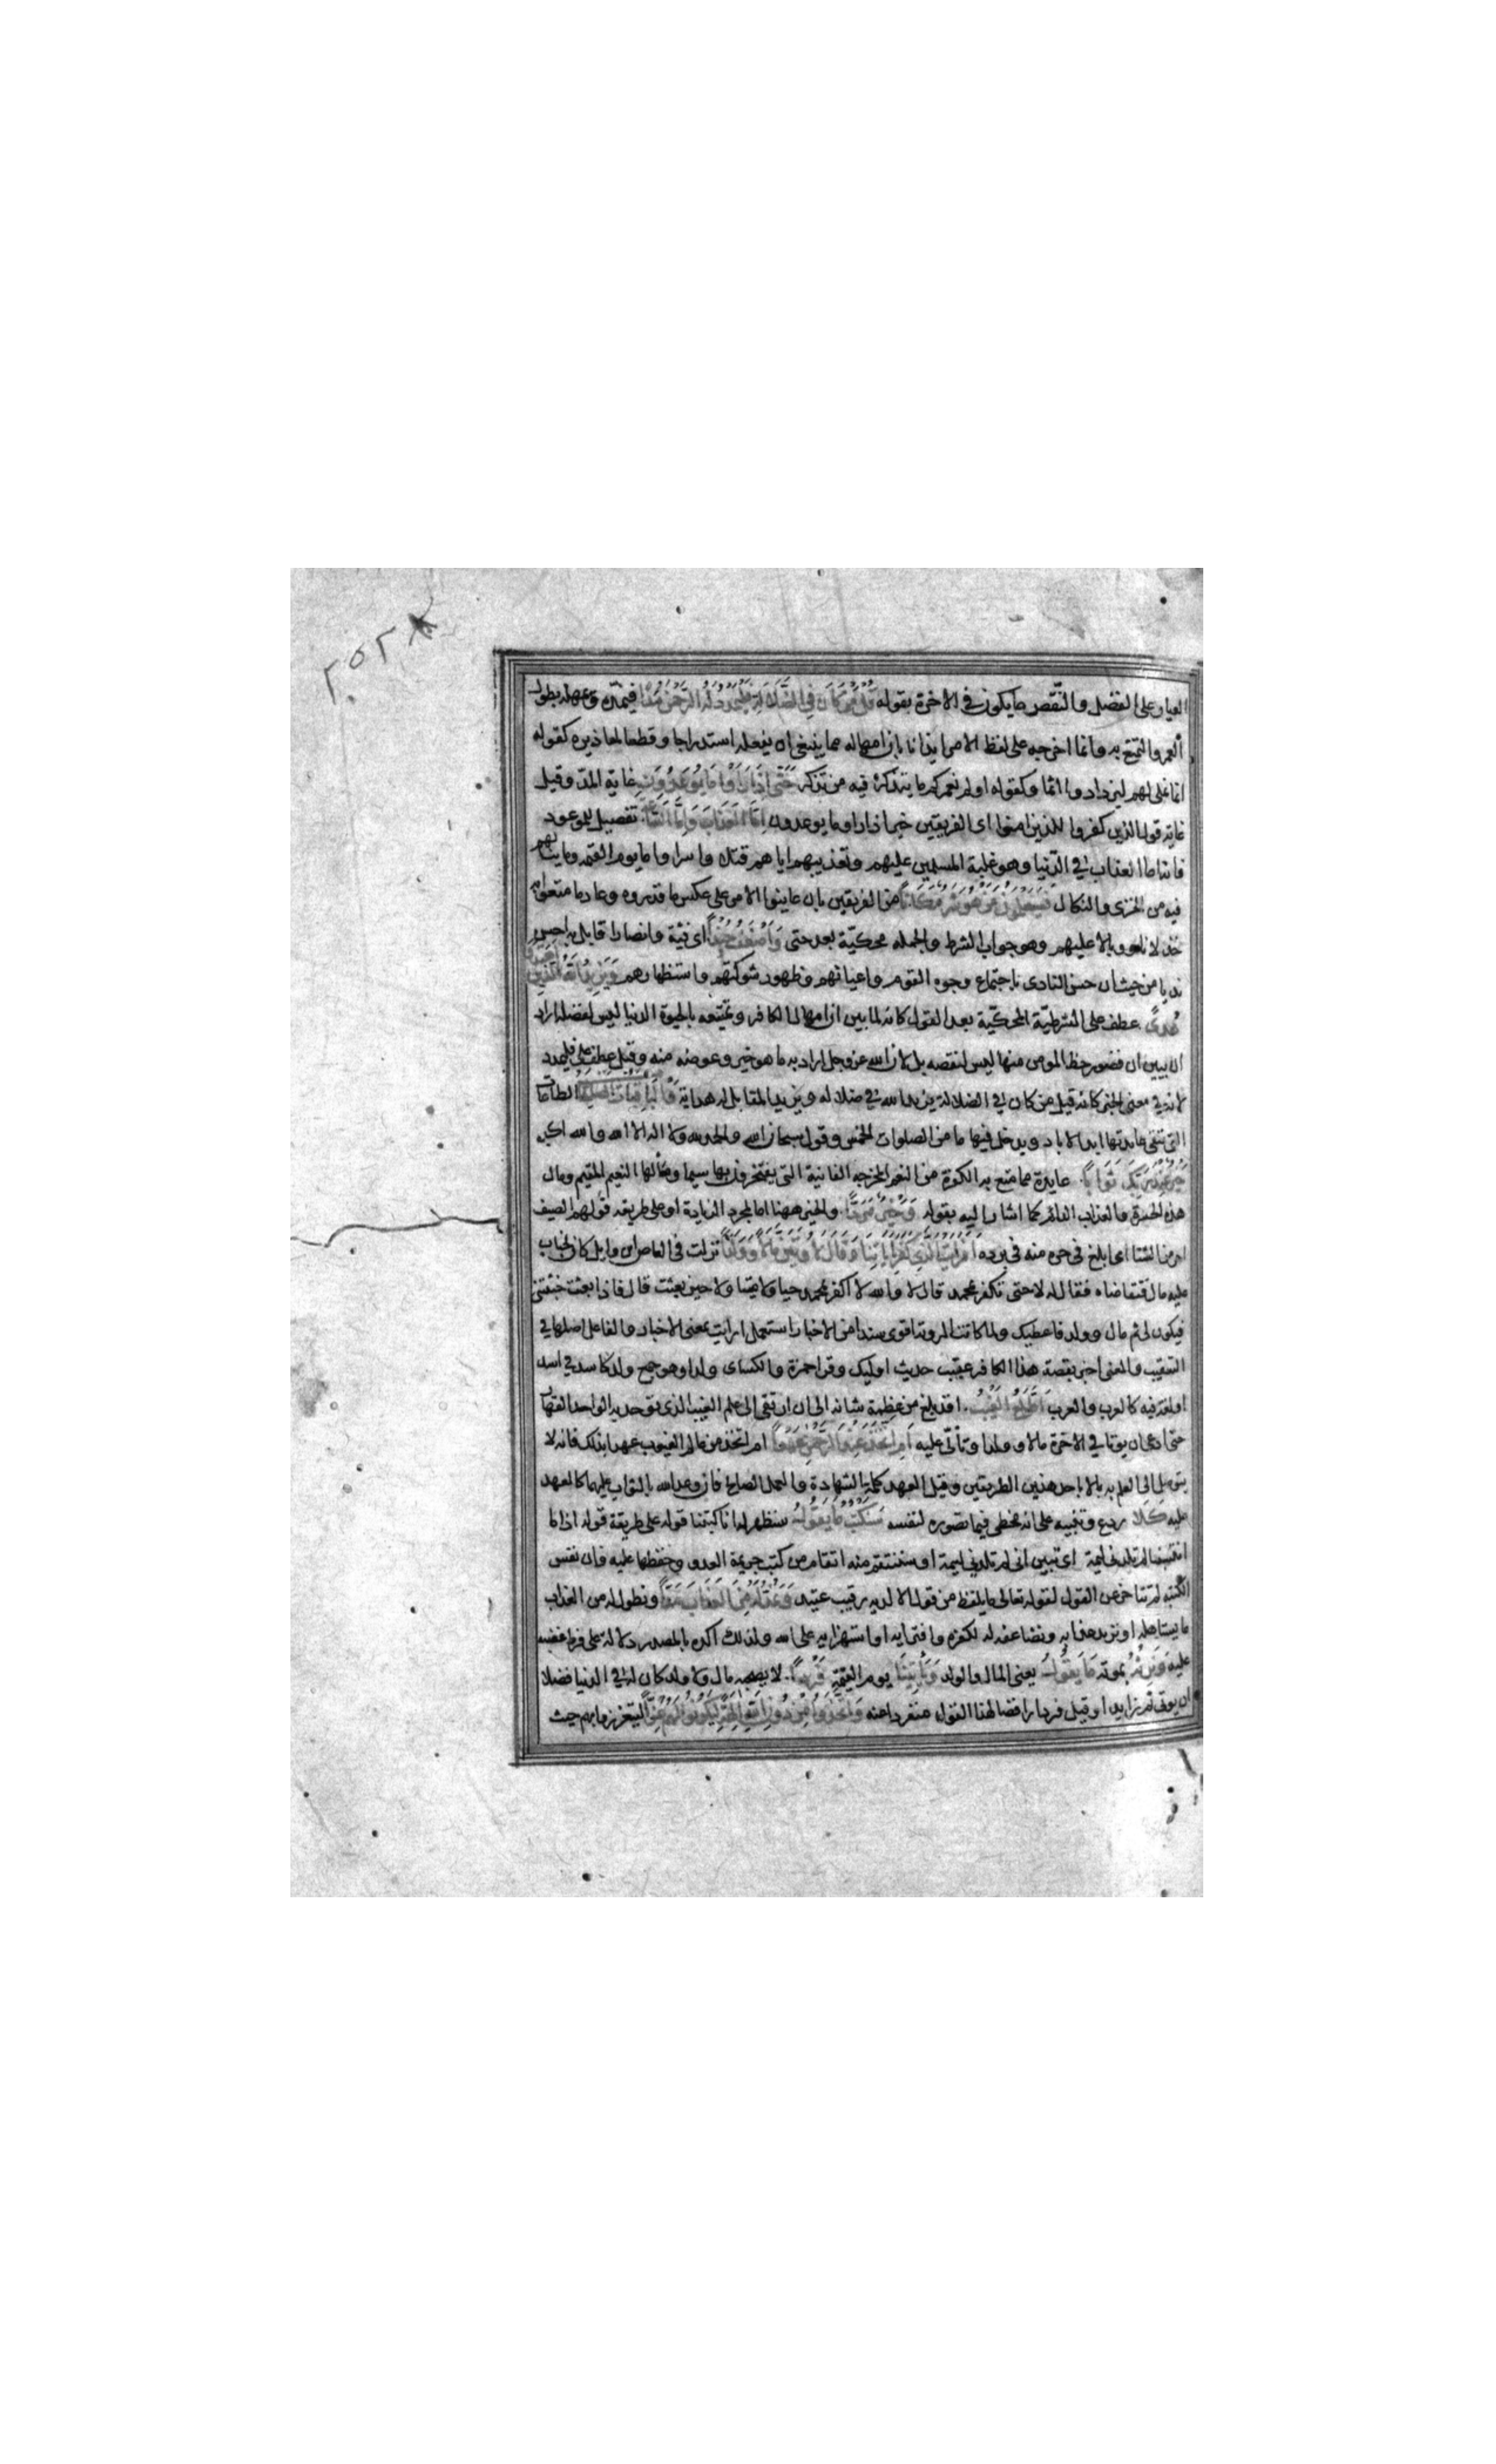 ٢٥٢
العيار على الفضل والنقص ما يكون في الاخرة بقوله قُلْ مَنْ كَانَ فِي الضَّلَالَةِ فَلْيَمْدُدْ لَهُ الرَّحْمٰنُ مَدًّا فيمدّه ويمهله بطول
العمر والتمتع به وانما اخرجه على لفظ الامر ايذانا بان امهاله مما ينبغي ان يفعله استدراجا وقطعا لمعاذيره كقوله
انما نملي لهم ليزدادوا اثما وكقوله اولم نعمركم ما يتذكر فيه من تذكر حَتَّى إِذَا رَأَوْا مَا يُوعَدُونَ غاية المدّ وقيل
غاية قول الذين كفروا للذين امنوا اى الفريقين خير حتى اذا راوا ما يوعدون إِمَّا الْعَذَابَ وَإِمَّا السَّاعَةَ تفصيل للموعود
فانه اما العذاب في الدّنيا وهو غلبة المسلمين عليهم وتعذيبهم اياهم قتلا واسرا واما يوم القيمة وما ينالهم
فيه من الخزى والنكال فَسَيَعْلَمُونَ مَنْ هُوَ شَرٌّ مَكَانًا من الفريقين بان عاينوا الامر على عكس ما قدروه وعاد ما متعوا به
خذلانا ووبالا عليهم وهو جواب الشرط والجملة محكيّة بعد حتى وَأَضْعَفُ جُنْدًا اى فئة وانصارا قابل به احسن
نديا من حيث ان حسن النادى باجتماع وجوه القوم واعيانهم وظهور شوكتهم واستظهارهم وَيَزِيدُ اللَّهُ الَّذِينَ اهْتَدَوْا
هُدًى عطف على الشرطيّة المحكيّة بعد القول كانه لما بين ان امهال الكافر وتمتيعه بالحيوة الدنيا ليس لفضله اراد
ان يبين ان قصور حظ المومن منها ليس لنقصه بل لان الله عز وجل اراد به ما هو خير وعوضه منه وقيل عطف على فليمدد
لانه في معنى الخبر كانه قيل من كان في الضلالة يزيد الله في ضلاله ويزيد المقابل له هداية وَالْبَاقِيَاتُ الصَّالِحَاتُ الطاعات
التى تبقى عايدتها ابد الاباد ويدخل فيها ما من الصلوات الخمس وقول سبحان الله والحمد لله ولا اله الا الله والله اكبر
خَيْرٌ عِنْدَ رَبِّكَ ثَوَابًا عايدة مما متع به الكفرة من النعم المخدجه الفانية التى يفتخرون بها سيما ومآلها النعيم المقيم ومال
هذه الحسرة والعذاب الدائم كما اشار اليه بقوله وَخَيْرٌ مَرَدًّا والخير ههنا اما لمجرد الزيادة او على طريقه قولهم الصيف
احر من الشتا اى ابلغ فى حره منه فى برده أَفَرَأَيْتَ الَّذِي كَفَرَ بِآيَاتِنَا وَقَالَ لَأُوتَيَنَّ مَالًا وَوَلَدًا نزلت فى العاص ابن وايل كان لخباب
عليه مال فتقاضاه فقال له لا حتى تكفر بمحمد قال لا والله لا اكفر بمحمد حيا ولا ميتا ولا حين بعثت قال فاذا بعثت جئتنى
فيكون لى ثم مال وولد فاعطيك ولما كانت الروية اقوى سند من الاخبار استعمل ارايت بمعنى الاخبار والفا على اصلها في
التعقيب والمعنى اخبر بقصة هذا الكافر عقيب حديث اوليك وقرا حمزة والكساى ولدا وهو جمع ولد كاسد في اسد
او لغة فيه كالعرب والعرب أَطَّلَعَ الْغَيْبَ اقد بلغ من عظمة شانه الى ان ارتقى الى علم الغيب الذى توحد به الواحد القهار
حتى ادعى ان يوتا في الاخرة مالا وولدا وتألى عليه أَمِ اتَّخَذَ عِنْدَ الرَّحْمٰنِ عَهْدًا ام اتخذ من عالم الغيوب عهدا بذلك فانه لا
يتوصل الى العلم به الا باحد هذين الطريقين وقيل العهد كلمة الشهادة والعمل الصالح فان وعد الله بالثواب عليهما كالعهد
عليه كَلَّا ردع وتنبيه على انه مخطى فيما تصوره لنفسه سَنَكْتُبُ مَا يَقُولُ سنظهر له انا كتبنا قوله على طريقة قوله اذا ما
انتسبنا لم تلدنى لئيمة اى تبين انى لم تلدنى لئيمة او سننتقم منه انتقام من كتب جريمة العدو وحفظها عليه فان نفس
الكتبه لا تتاخر عن القول لقوله تعالى ما يلفظ من قول الا لديه رقيب عتيد وَنَمُدُّ لَهُ مِنَ الْعَذَابِ مَدًّا ونطول له من العذاب
ما يستاهله او نزيد عذابه ونضاعفه له لكفره وافترايه او استهزايه على الله ولذلك اكده بالمصدر دلالة على فرط غضبه
عليه وَنَرِثُهُ بموته مَا يَقُولُ يعنى المال والولد وَيَأْتِينَا يوم القيمة فَرْدًا لا يصحبه مال ولا ولد كان له في الدنيا فضلا
ان يوتى ثم زايدا وقيل فردا رافضا لهذا القول منفردا عنه وَاتَّخَذُوا مِنْ دُونِ اللَّهِ آلِهَةً لِيَكُونُوا لَهُمْ عِزًّا ليتعززوا بهم حيث